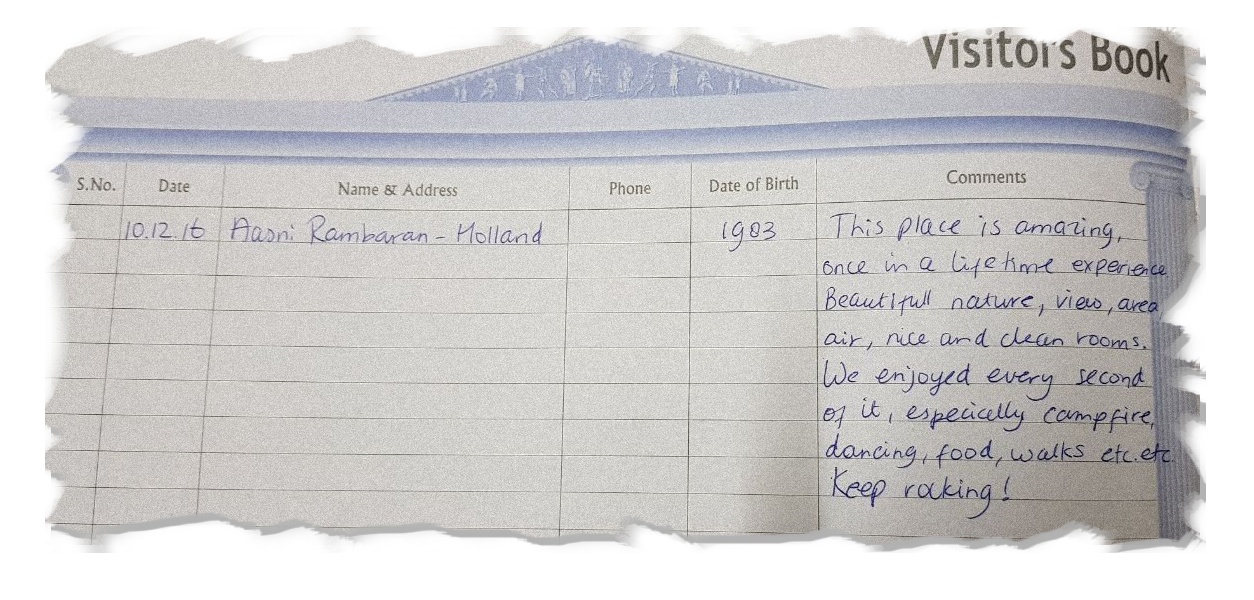 Visitors Book
S.No. Date Name & Address Phone Date of Birth Comments
10.12.16 Aasni Rambaran - Holland 1983 This place is amazing,
once in a lifetime experience
Beautifull nature, view, area
air, nice and clean rooms.
We enjoyed every second
of it, especially campfire,
dancing, food, walks etc. etc
Keep rocking!